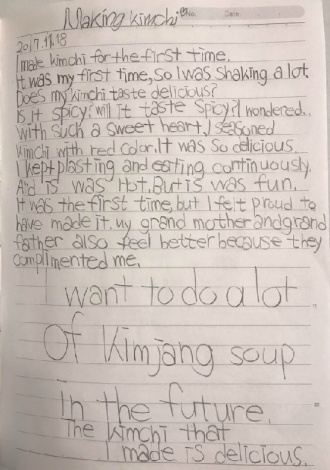 Making kimchi
No. Date
2017.11.18
I made kimchi for the first time.
It was my first time, so I was shaking a lot.
Does my kimchi taste delicious?
Is it spicy? will it taste spicy? I wondered..
With such a sweet heart, I seasoned
kimchi with red color. It was so delicious.
I kept plasting and eating continuously.
And is was Hot. But is was fun.
It was the first time, but I felt proud to
have made it. my grand mother and grand
father also feel better because they
complimented me.
I want to do a lot
Of Kimjang soup
in the future.
The kimchi that
I made is delicious.